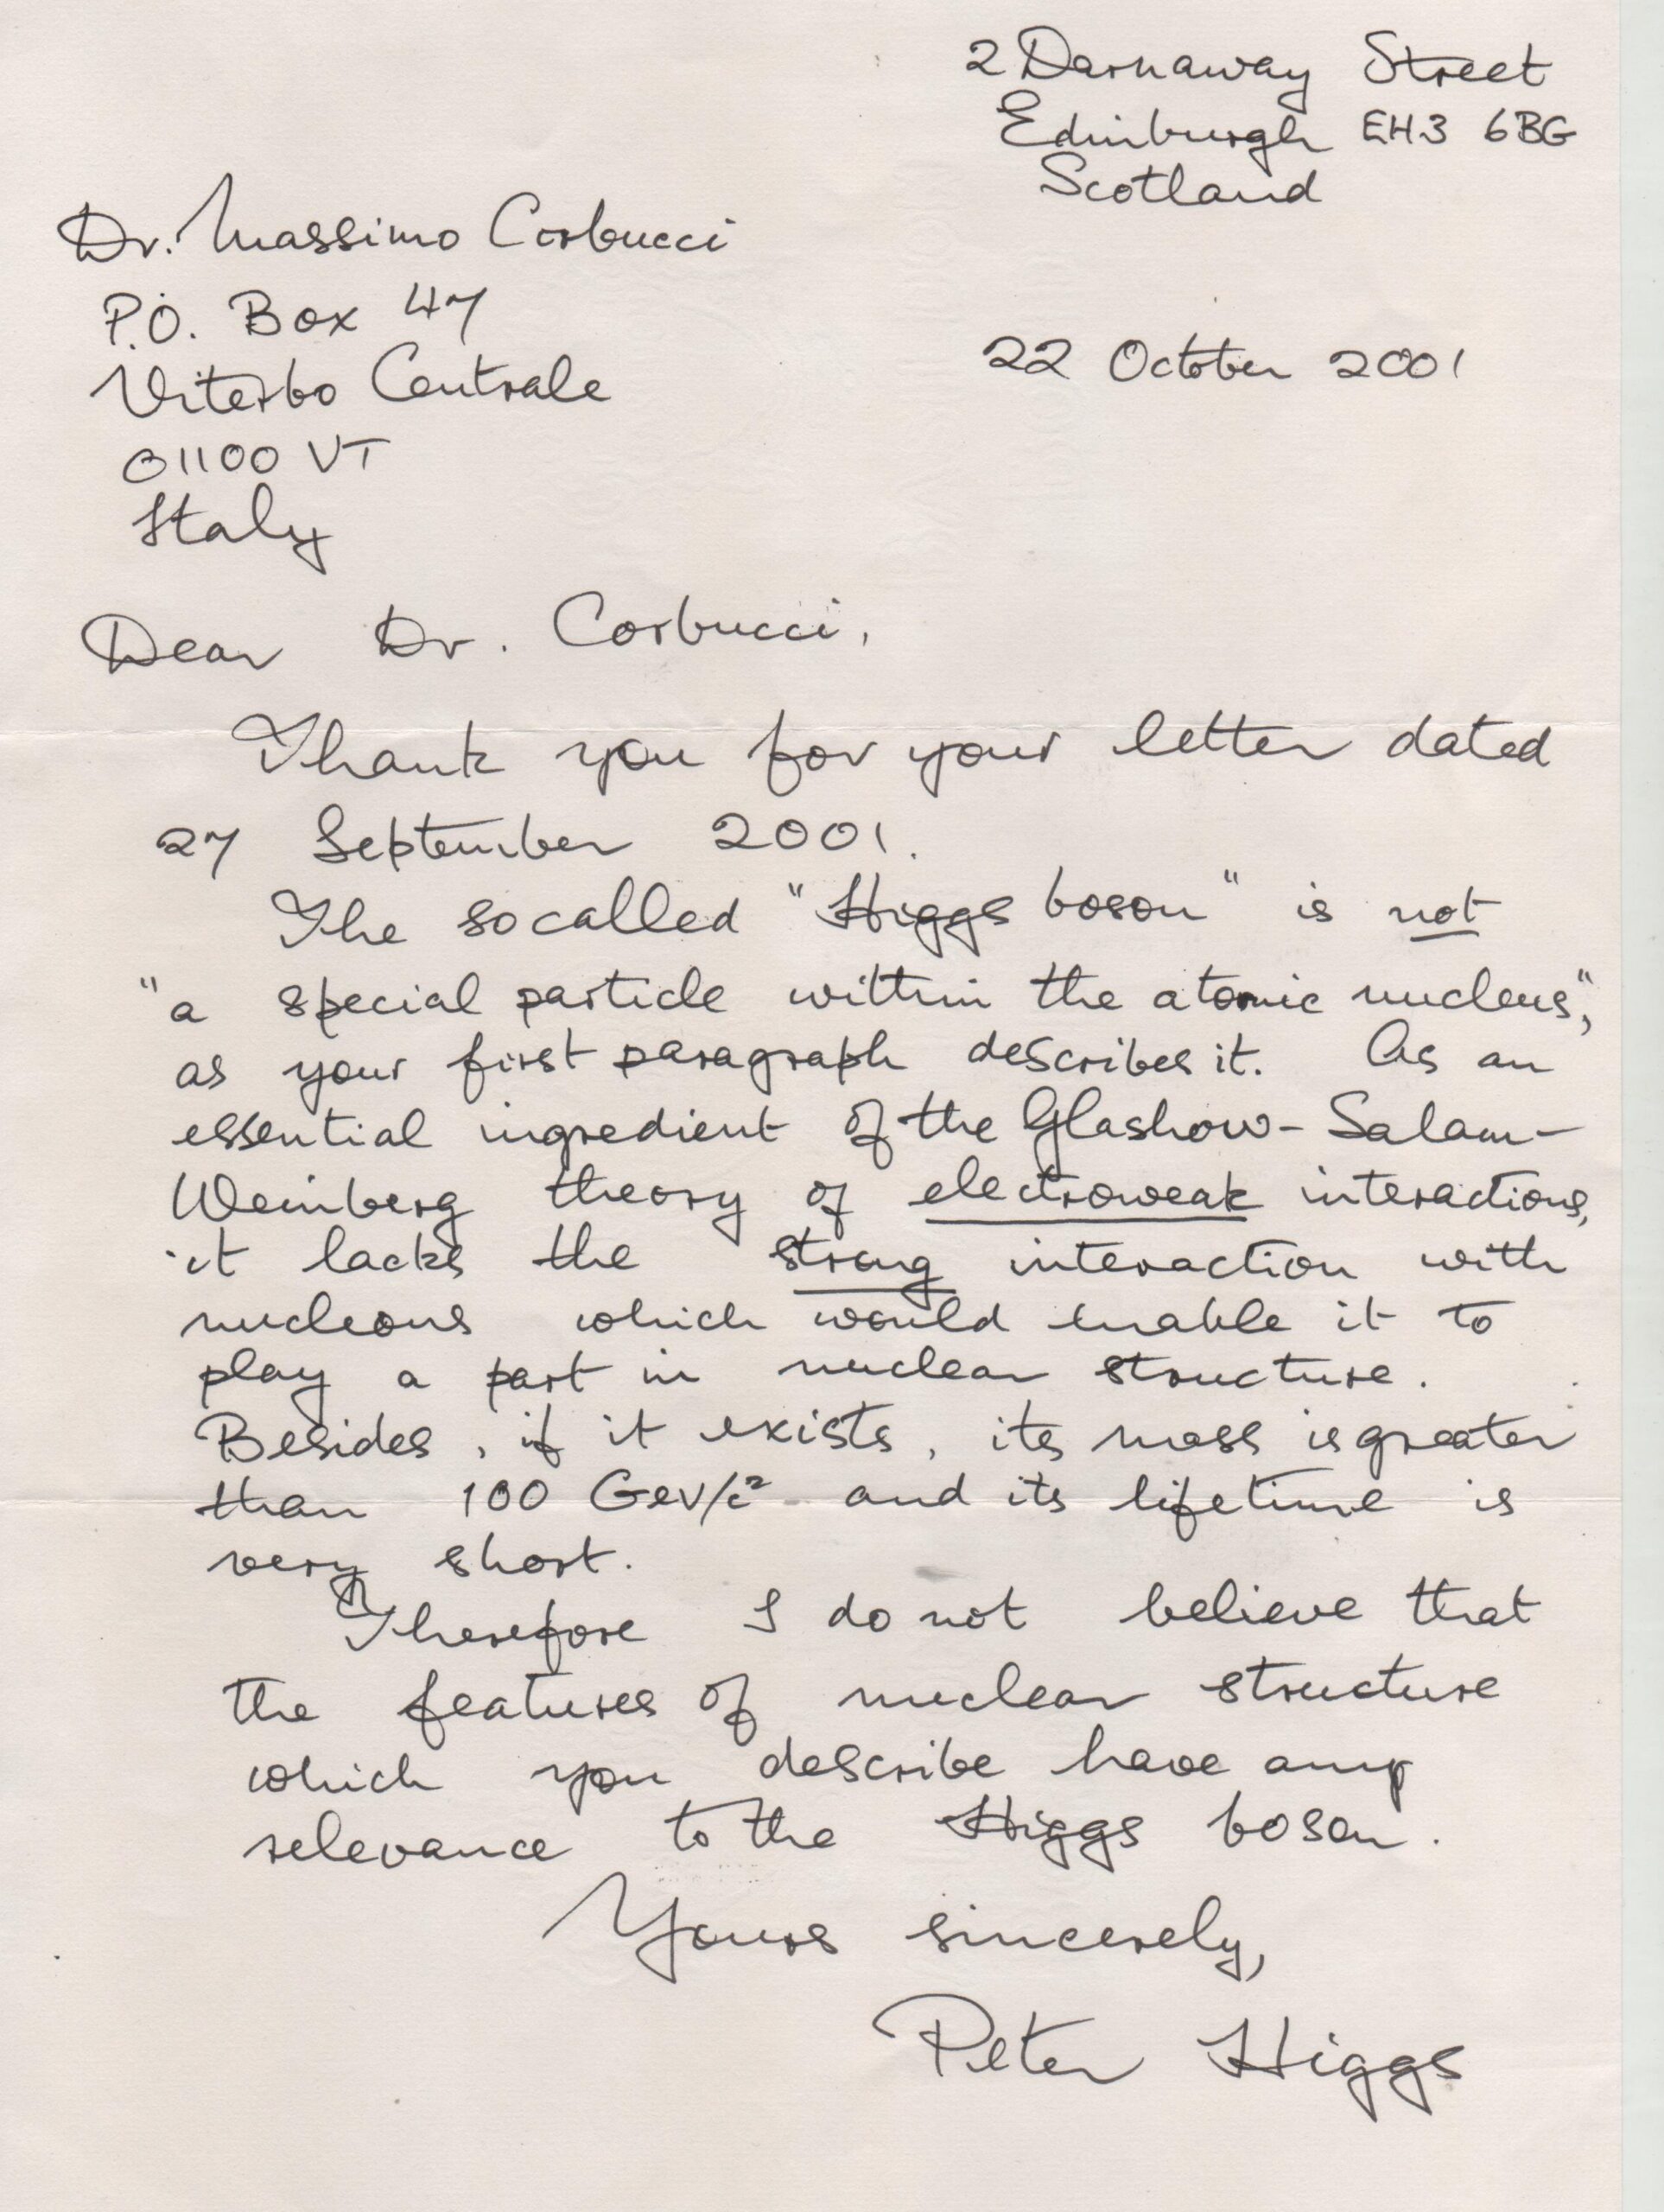 2 Darnaway Street
Edinburgh EH3 6BG
Scotland
Dr. Massimo Corbucci
P.O. Box 47
Viterbo Centrale
01100 VT
Italy
22 October 2001
Dear Dr. Corbucci,
Thank you for your letter dated
27 September 2001.
The socalled "Higgs boson" is not
"a special particle within the atomic nucleus",
as your first paragraph describes it. As an
essential ingredient of the Glashow-Salam-
Weinberg theory of electroweak interactions,
it lacks the strong interaction with
nucleons which would enable it to
play a part in nuclear structure.
Besides, if it exists, its mass is greater
than 100 GeV/c² and its lifetime is
very short.
Therefore I do not believe that
the features of nuclear structure
which you describe have any
relevance to the Higgs boson.
Yours sincerely,
Peter Higgs